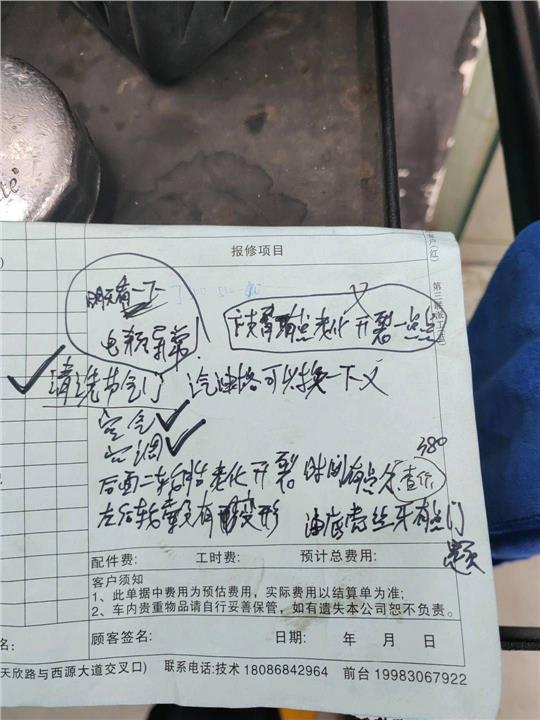 报修项目
(红)
明天看一下
电瓶异常!
支臂有点老化开裂一点点
清洗节气门 汽油格可以换一下
空气
空调
后面二轮胎老化开裂 时间有点久 查价 380
左后轮毂有变形 油底壳丝牙有点门
题
配件费: 工时费: 预计总费用:
客户须知
1、此单据中费用为预估费用,实际费用以结算单为准;
2、车内贵重物品请自行妥善保管,如有遗失本公司恕不负责。
名: 顾客签名: 日期: 年 月 日
天欣路与西源大道交叉口) 联系电话:技术 18086842964 前台 19983067922